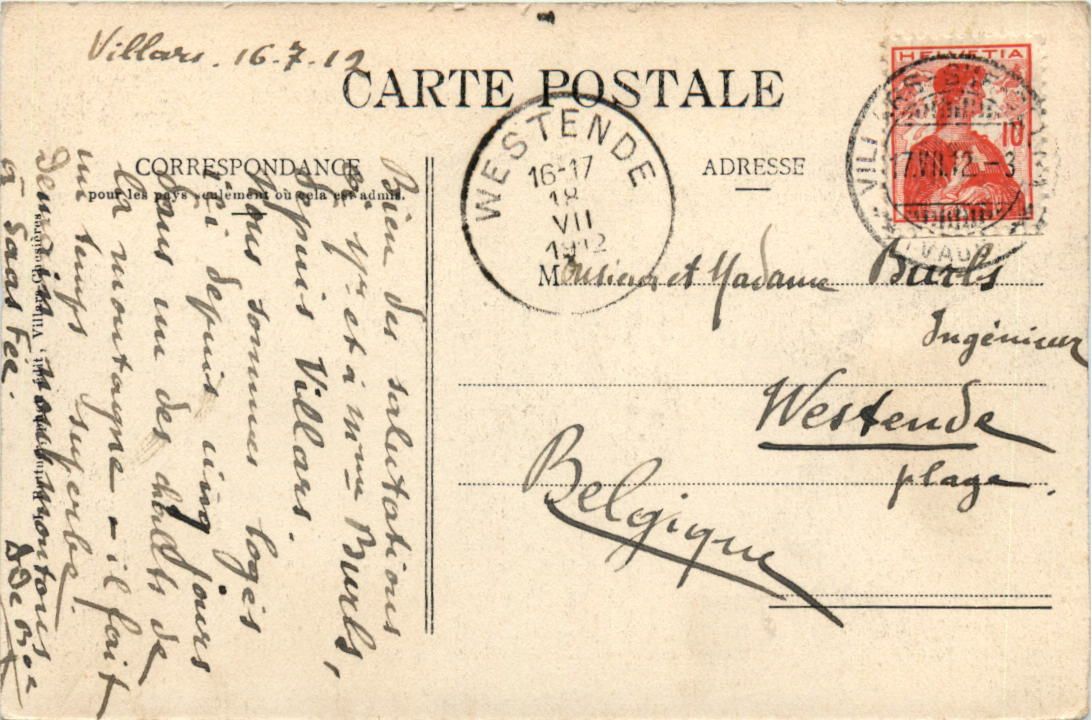 Villars. 16.7.12
CARTE POSTALE
CORRESPONDANCE
pour les pays seulement où cela est admis.
ADRESSE
HELVETIA
10
17.VII.12.-3
(VAUD)
WESTENDE
16-17
18
VII
1912
Monsieur et Madame Burls
Ingénieur
Westende
plage.
Belgique
Bien des salutations
à Mr et à Mme Burls,
depuis Villars.
Nous sommes logés
ici depuis cinq jours
dans un des chalets de
la montagne - il fait
un temps superbe.
Demain nous montons
à Saas Fee.
Villars-Chesières